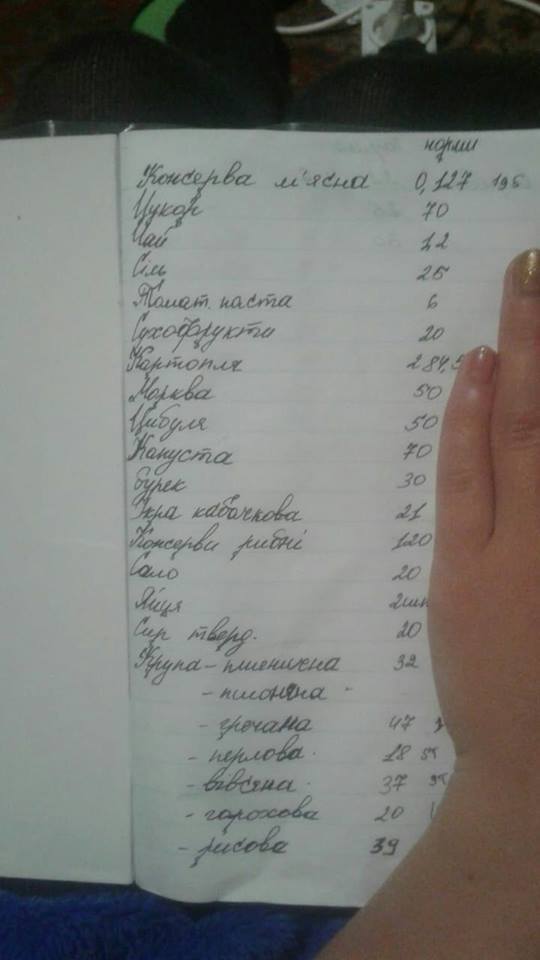 норми
Консерва м'ясна 0,127 195
Цукор 70
Чай 1,2
Сіль 25
Томат. паста 6
Сухофрукти 20
Картопля 284,5
Морква 50
Цибуля 50
Капуста 70
Буряк 30
Ікра кабачкова 21
Консерви рибні 120
Сало 20
Яйця 2шт
Сир тверд. 20
Крупа - пшенична 32
- пшоняна -
- гречана 47
- перлова. 18
- вівсяна. 37
- горохова 20
- рисова 39